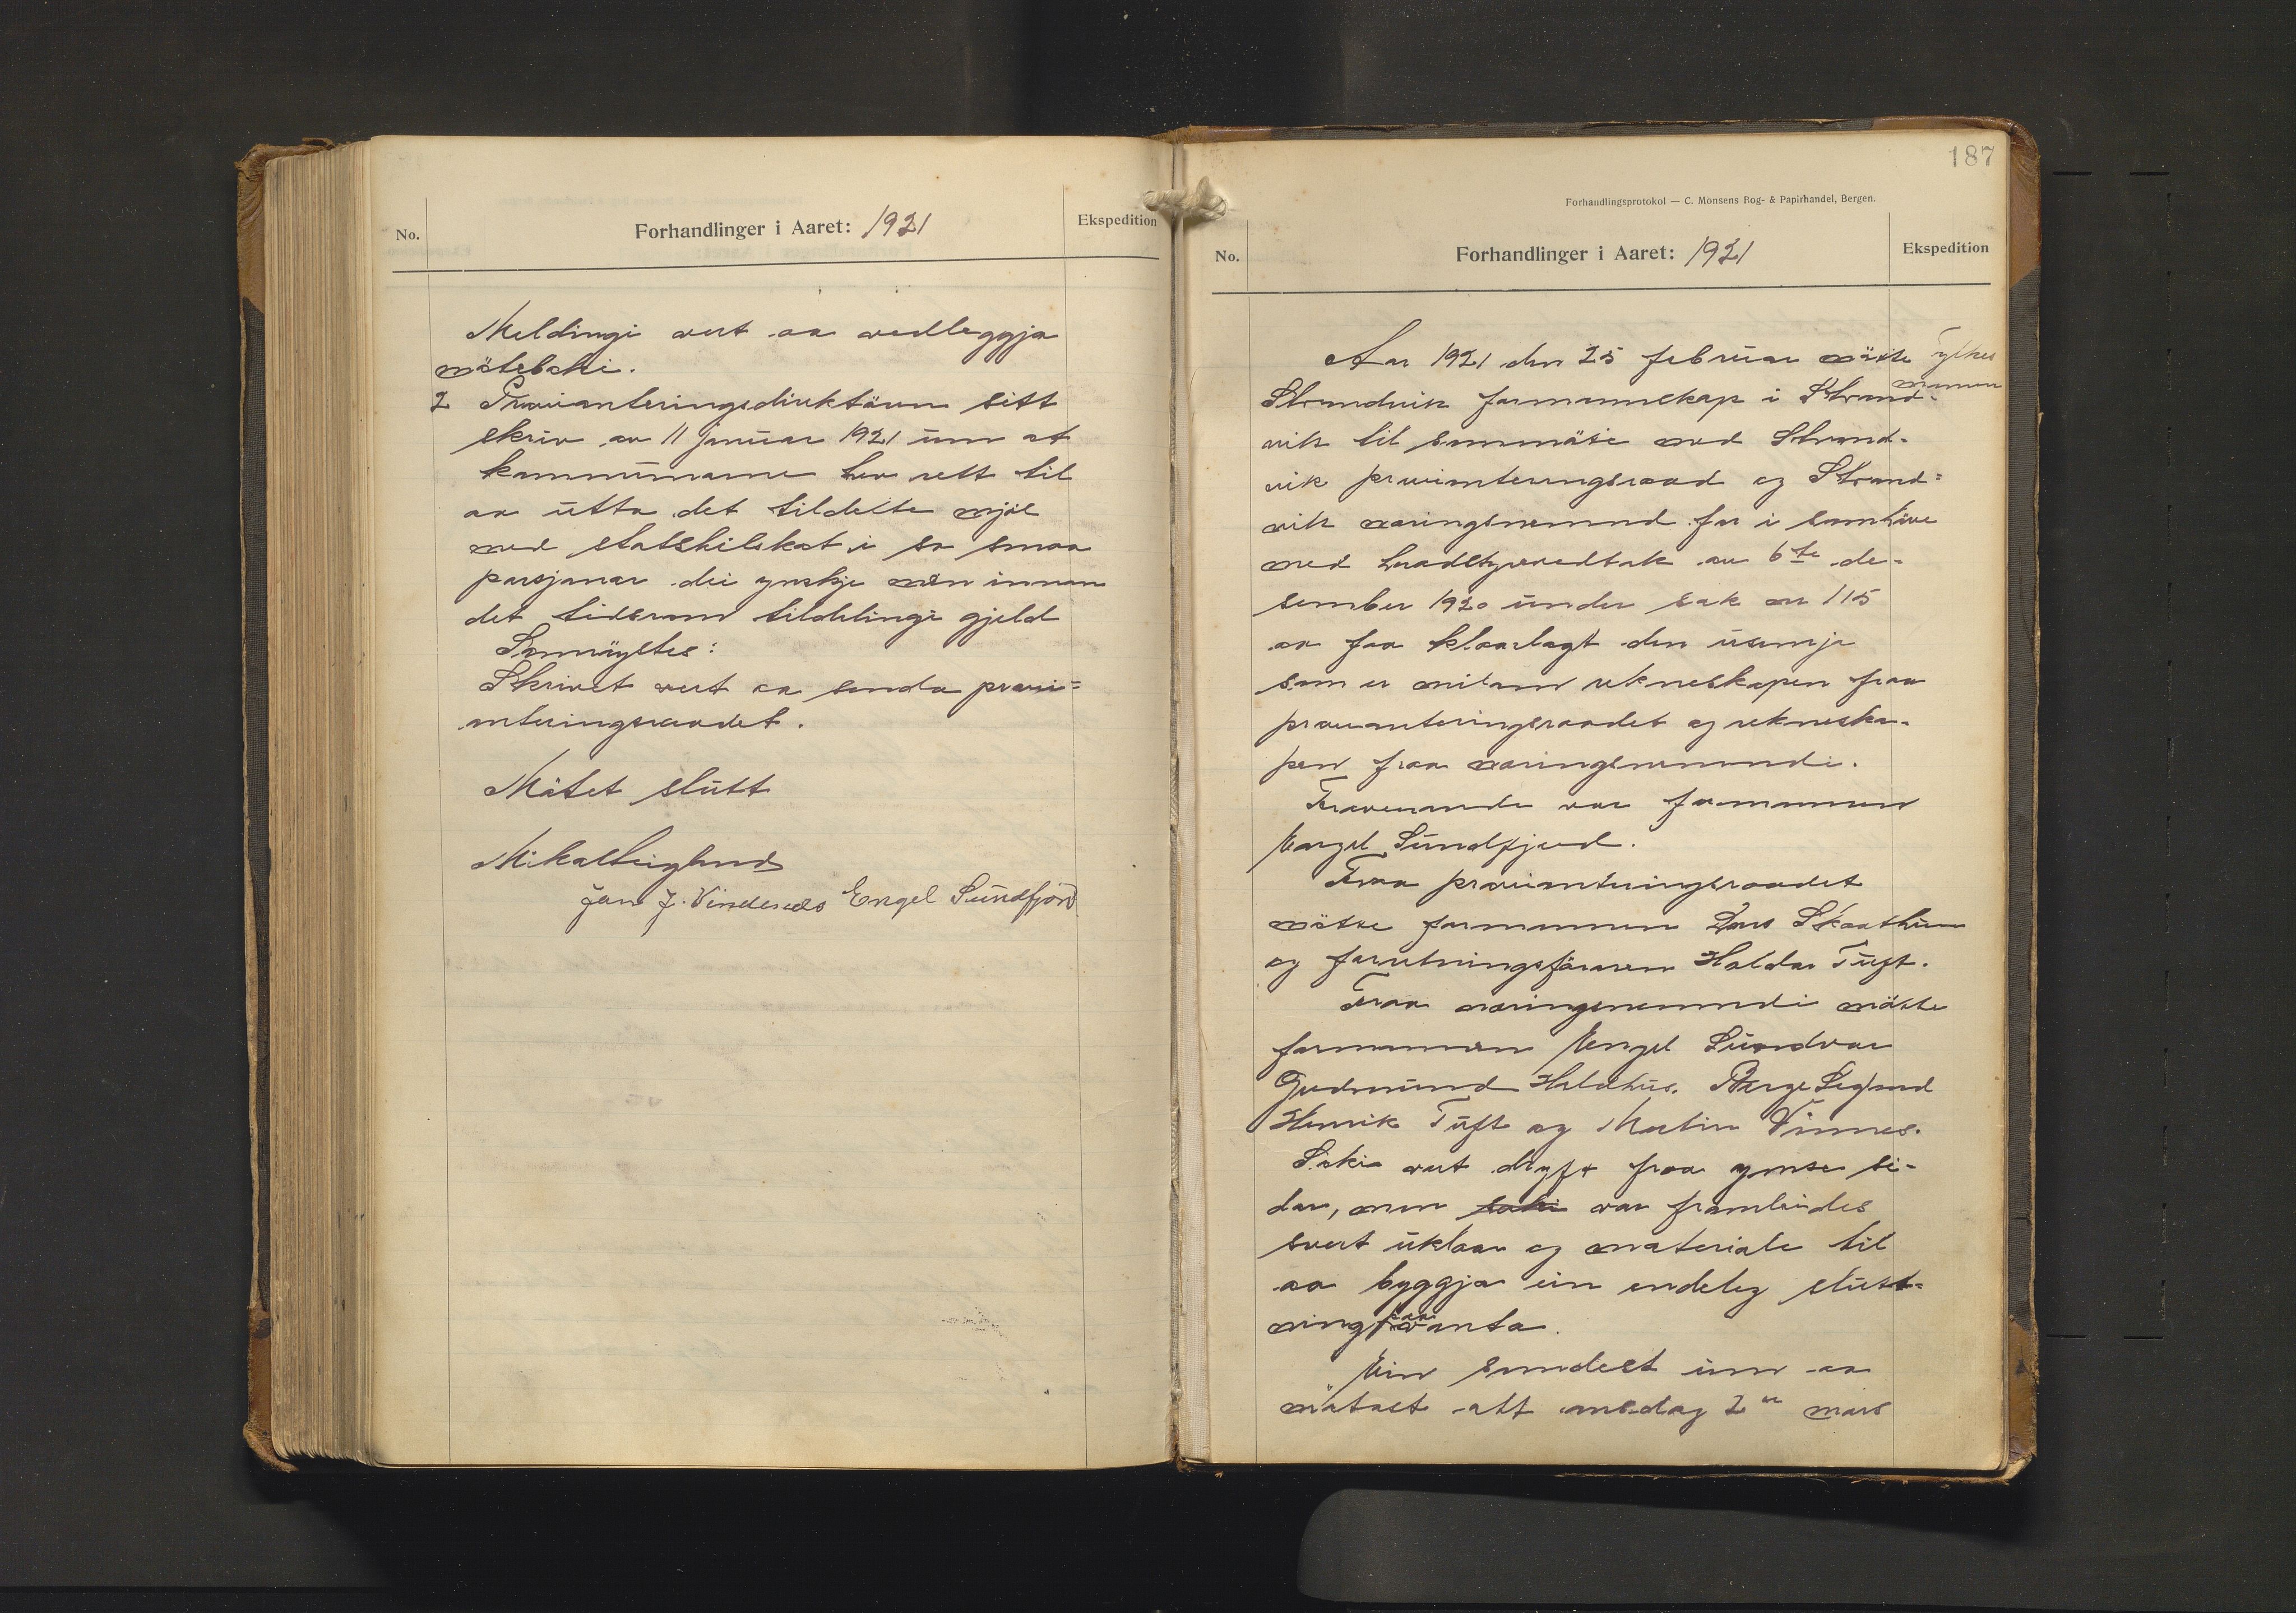 No.
Forhandlinger i Aaret: 1921
Ekspedition
Meldingi vert aa vedleggja
möteboki.
2 Provianteringsdirektörn sitt
skriv av 11 januar 1921 um at
kommunarne hev rett til
aa utta det tildelte mjöl
med statstilskot i so smaa
parsjonar dei ynskje men innan
det tidsrom tildelingi gjeld
Samröystes:
Skrivet vert aa senda provi=
anteringsraadet.
Mötet slutt
Mikal Leigland
Jan J. Vindenes Engel Sundfjord
187
Forhandlingsprotokol — C. Monsens Bog- & Papirhandel, Bergen.
No.
Forhandlinger i Aaret: 1921
Ekspedition
Aar 1921 den 25 februar mötte
Fylkes
mannen
Strandvik formannskap i Strand-
vik til sammöte med Strand-
vik provianteringsraad og Strand=
vik næringsnemnd for i samhøve
med heradstyrevedtak av 6te de-
sember 1920 under sak nr 115
aa faa klaarlagt den usemje
som er millom rekneskapen fraa
provianteringsraadet og rekneska-
pen fraa næringsnemndi.
Fraverande var formannen
Engel Sundfjord.
Fraa provianteringsraadet
mötte formannen Lars Skaathun
og forretningsföraren Haldor Tuft.
Fraa næringsnemndi mötte
formannen Engel Sundvor
Gudmund Holdhus. Børge Legland
Henrik Tuft og Martin Vinnes.
Saki vart dryft fraa ymse si-
dor, men saki var framleides
svert uklaar og materiale til
aa byggja ein endeleg slutt-
ning paa vanta.
Ein samdest um aa
mötast att onsdag 2en mars